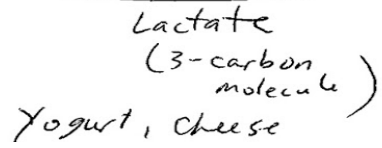 Lactate
(3-carbon
molecule)
Yogurt, Cheese